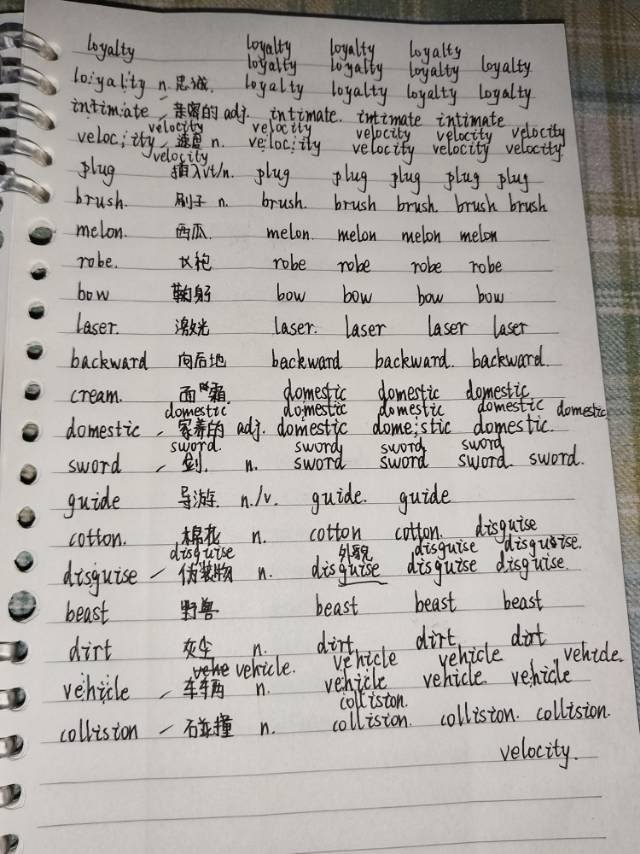 loyalty loyalty loyalty loyalty
loyalty loyalty loyalty loyalty
lo;yality n. 忠诚 loyalty loyalty loyalty loyalty
intim:ate 亲密的 adj. intimate. intimate intimate
velocity velocity velocity velocity velocity
veloc;ity 速度 n. veloc;ity velocity velocity velocity.
velocity
plug 插入vt/n. plug plug plug plug plug
brush. 刷子 n. brush. brush brush. brush brush
melon. 西瓜 melon. melon melon melon
robe. 长袍 robe robe robe robe
bow 鞠躬 bow bow bow bow
laser. 激光 laser. laser laser laser
backward 向后地 backward backward. backward.
cream. 面霜 domestic domestic domestic
domestic domestic domestic domestic domestic
domestic 家养的 adj. domestic dome;stic domestic.
sword. sword sword sword
sword 剑. n. sword sword sword. sword.
guide 导游. n./v. guide. guide
cotton. 棉花 n. cotton cotton. disguise
disguise 外貌 disguise disguise.
disguise 伪装物 n. disguise disguise disguise.
beast 野兽 beast beast beast
dirt 灰尘 n. dirt dirt dirt
vehe vehicle. vehicle vehicle vehicle.
vehicle 车辆 n. vehicle vehicle. vehicle
collision.
collision 碰撞 n. collision. collision. collision.
velocity.